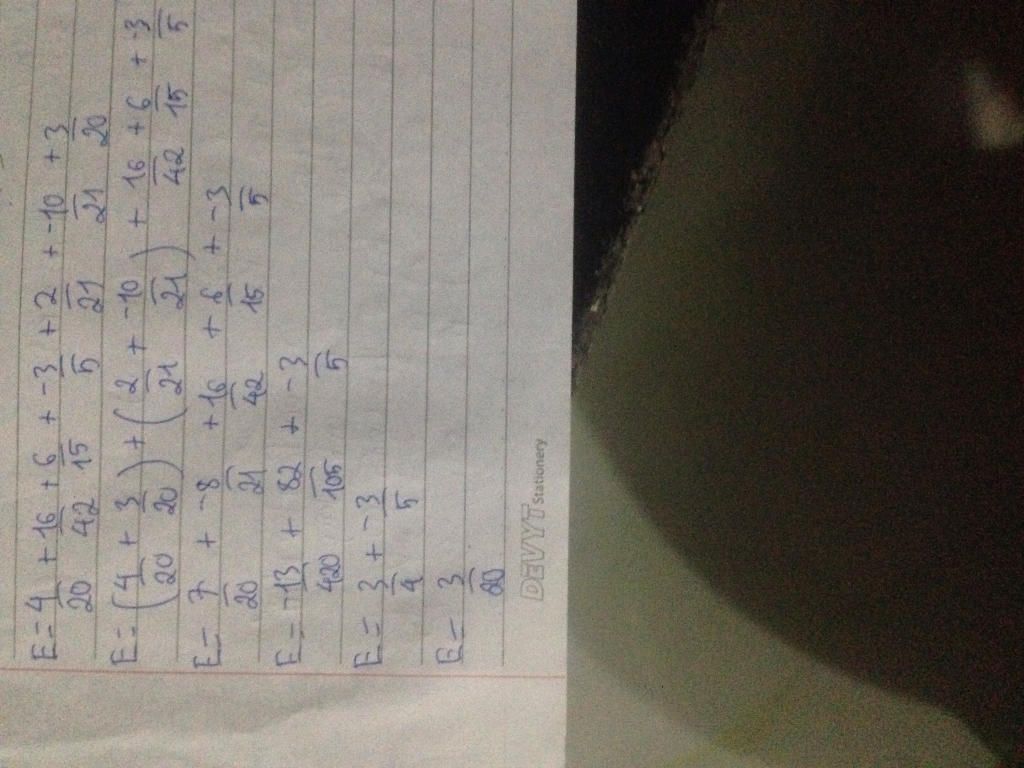 E = 4/20 + 16/42 + 6/15 + -3/5 + 2/21 + -10/21 + 3/20
E = (4/20 + 3/20) + (2/21 + -10/21) + 16/42 + 6/15 + -3/5
E = 7/20 + -8/21 + 16/42 + 6/15 + -3/5
E = -13/420 + 82/105 + -3/5
E = 3/4 + -3/5
E = 3/20
DEVYT Stationery